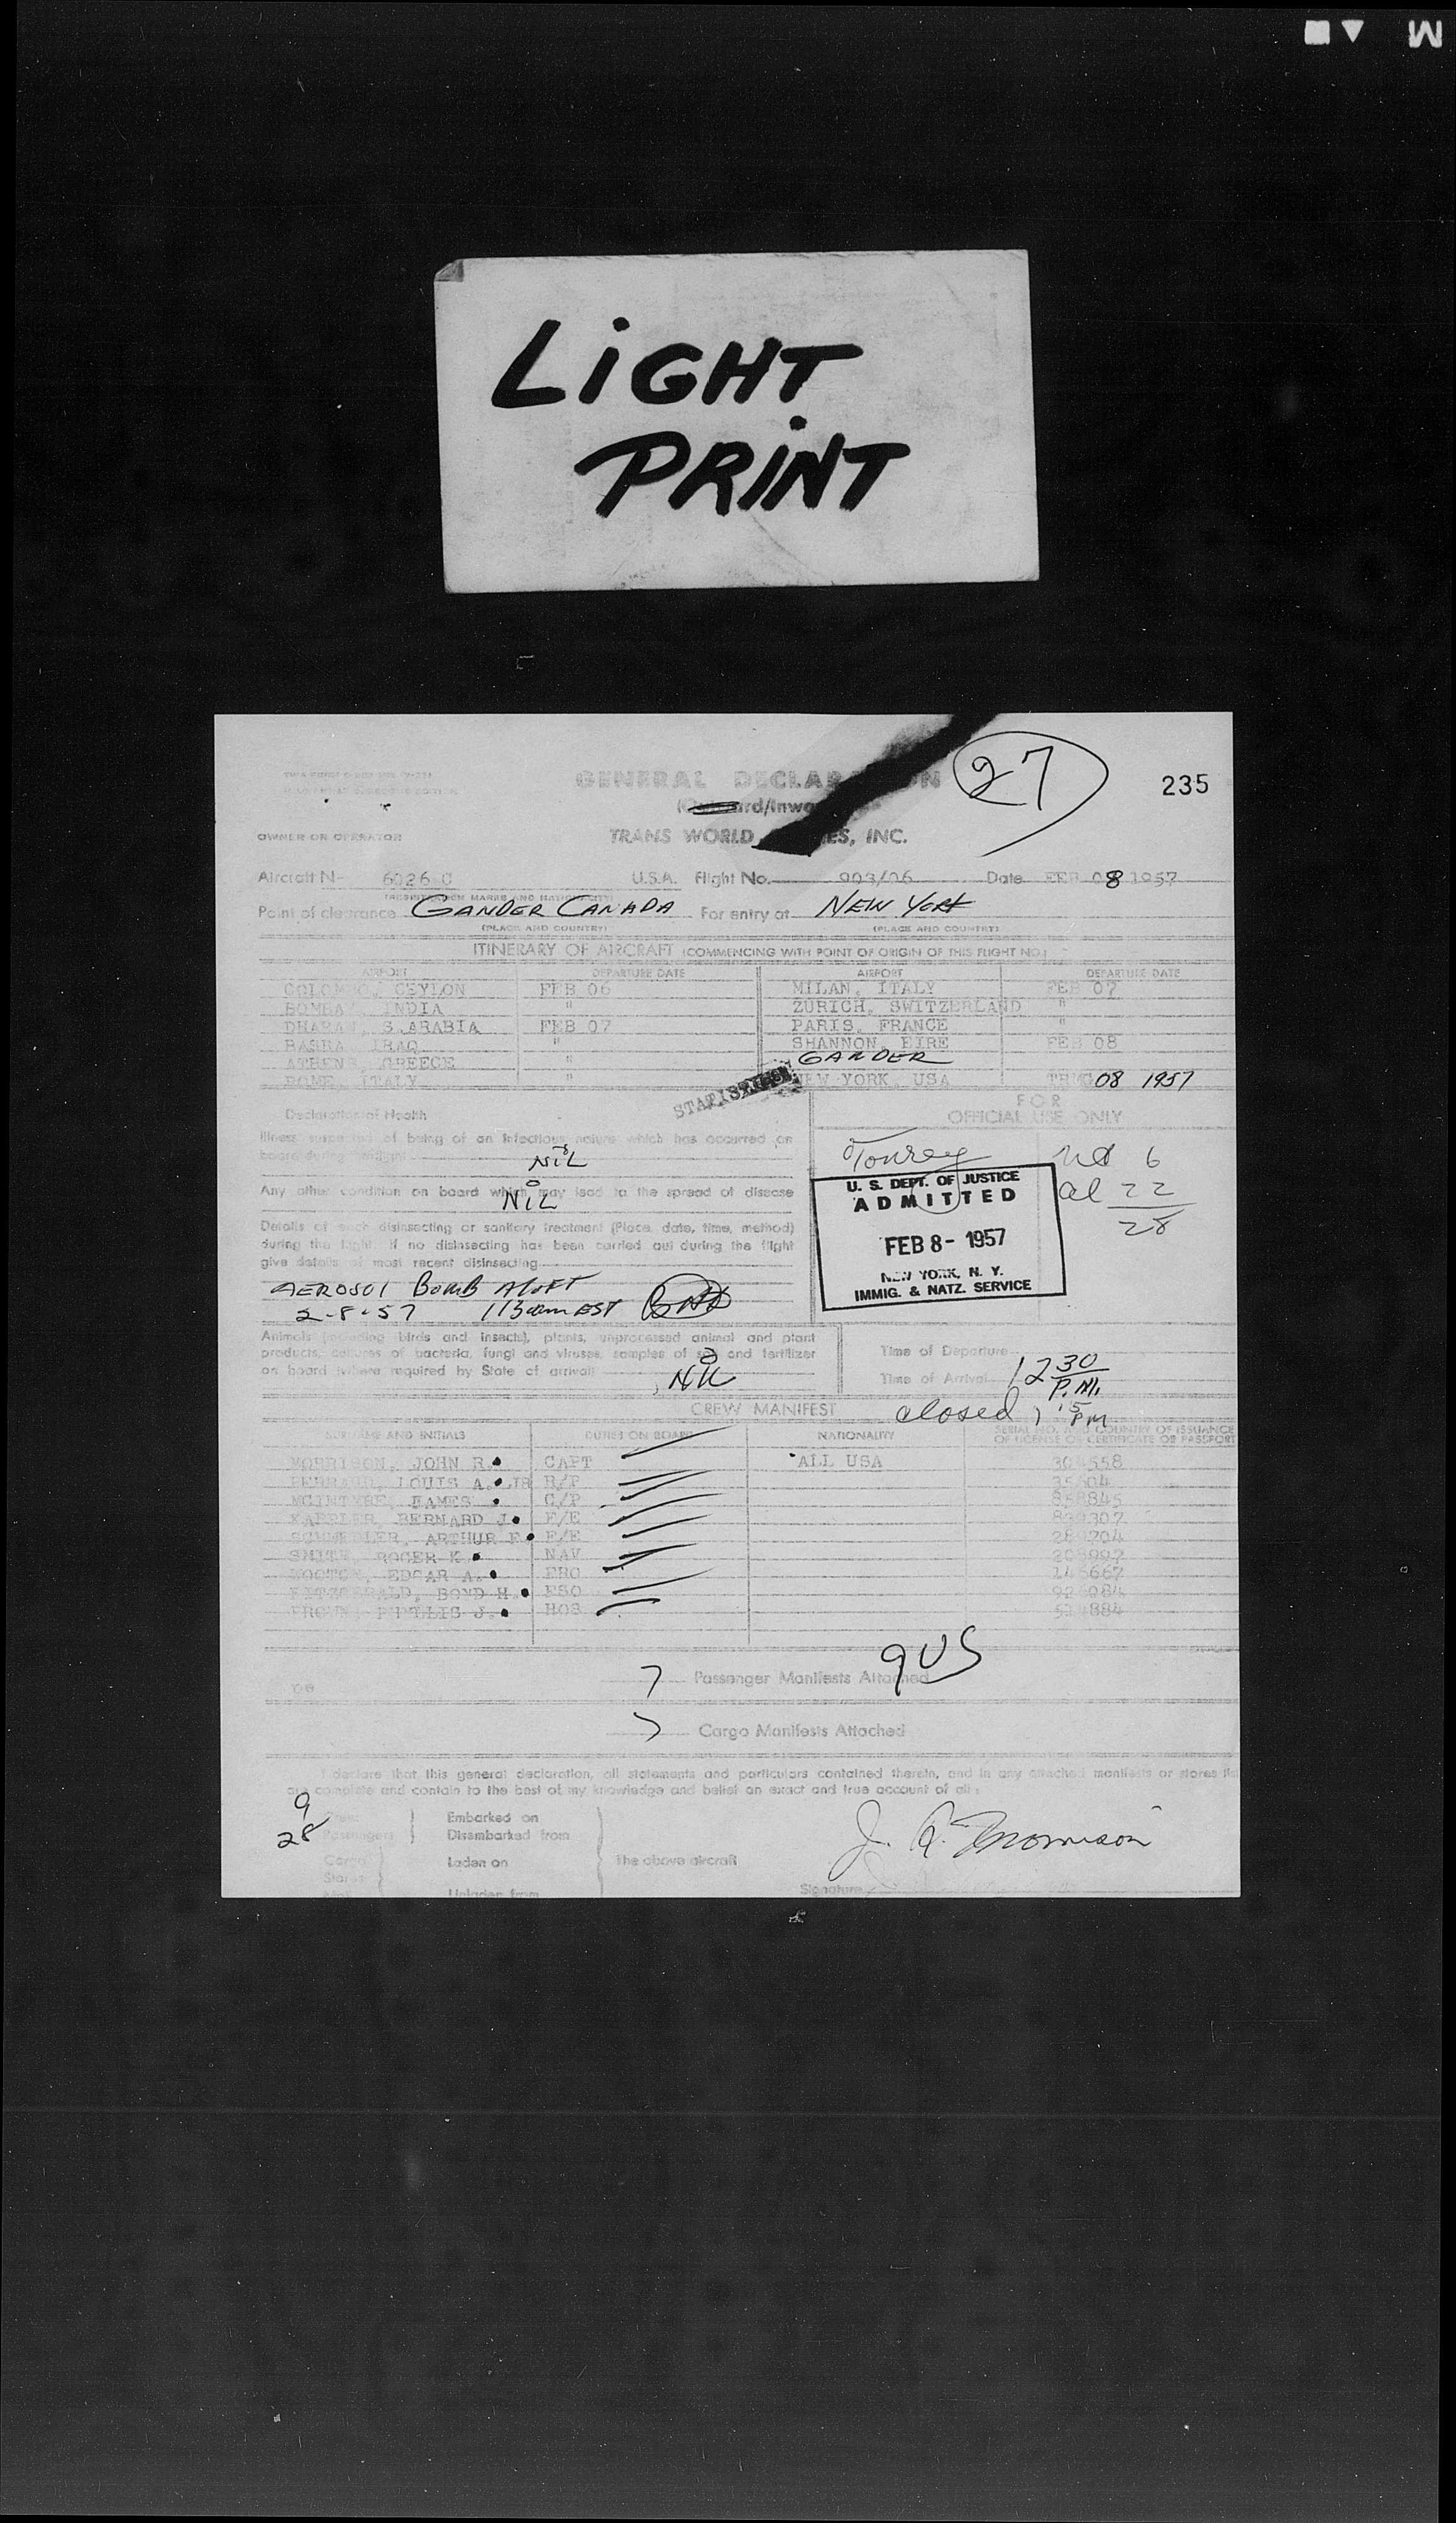 LiGHT
PRiNT
27
235
GENERAL DECLARATION
TRANS WORLD
ES, INC.
OWNER OR OPERATOR
Aircraft N- 6026 C U.S.A. Flight No. 903/06 Date FEB 08 1957
Point of clearance GANDER CANADA For entry at NEW YORK
(PLACE AND COUNTRY) (PLACE AND COUNTRY)
ITINERARY OF AIRCRAFT (COMMENCING WITH POINT OF ORIGIN OF THIS FLIGHT NO.)
AIRPORT DEPARTURE DATE AIRPORT DEPARTURE DATE
COLOMBO, CEYLON FEB 06 MILAN, ITALY FEB 07
BOMBAY INDIA " ZURICH, SWITZERLAND "
DHARAN, S.ARABIA FEB 07 PARIS, FRANCE "
BASRA IRAQ " SHANNON, EIRE FEB 08
ATHENS, GREECE " GANDER
ROME, ITALY " NEW YORK, USA 08 1957
Declaration of Health
FOR
OFFICIAL USE ONLY
Illness suspected of being of an infectious nature which has occurred on
board during the flight NiL
Any other condition on board which may lead to the spread of disease
NiL
Details of each disinsecting or sanitary treatment (Place, date, time, method)
during the flight. If no disinsecting has been carried out during the flight
give details of most recent disinsecting
AEROSOL BOMB ALOFT
2-8-57 EST
6
al 22
28
U. S. DEPT. OF JUSTICE
ADMITTED
FEB 8- 1957
NEW YORK, N. Y.
IMMIG. & NATZ. SERVICE
Animals (including birds and insects), plants, unprocessed animal and plant
products, cultures of bacteria, fungi and viruses, samples of soil and fertilizer
on board (where required by State of arrival) NiL
Time of Departure
Time of Arrival 12 30 P.M.
closed 1 15 PM
CREW MANIFEST
SURNAME AND INITIALS DUTIES ON BOARD NATIONALITY SERIAL NO. AND COUNTRY OF ISSUANCE
OF LICENSE OR CERTIFICATE OR PASSPORT
MORRISON, JOHN R. CAPT ALL USA
LOUIS A. JR
MCINTYRE, EAMES
KAPPLER, BERNARD J. F/E
ARTHUR F/E
SMITH ROGER K NAV
EDGAR A.
FITZGERALD, BOND H.
BROWN, PHYLLIS J. HOS
9 US
7 Passenger Manifests Attached
Cargo Manifests Attached
I declare that this general declaration, all statements and particulars contained therein, and in any attached manifests or stores
are complete and contain to the best of my knowledge and belief an exact and true account of all:
9 Crew
28 Passengers
Embarked on
Disembarked from
Cargo
Stores
Laden on
Unladen from
The above aircraft
J. R. Morrison
Signature